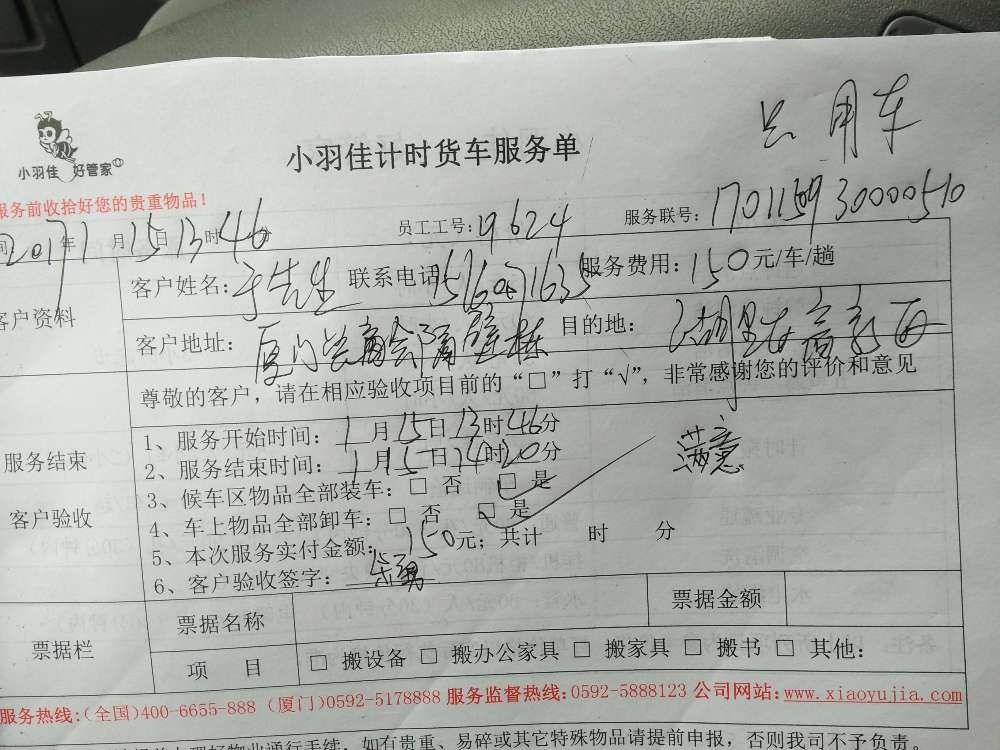 只用车
小羽佳 好管家
小羽佳计时货车服务单
服务前收拾好您的贵重物品！
间2017年1月15日13时46分 员工工号:19624 服务联号:17011593000510
客户资料
客户姓名:于先生 联系电话 服务费用:150元/车/趟
客户地址: 厦门 商会隔壁栋 目的地:
尊敬的客户，请在相应验收项目前的“□”打“√”，非常感谢您的评价和意见
服务结束
客户验收
1、服务开始时间:1月15日13时46分
2、服务结束时间:1月15日14时20分
满意
3、候车区物品全部装车:□ 否 □ 是
4、车上物品全部卸车:□ 否 □ 是
5、本次服务实付金额:150元；共计 时 分
6、客户验收签字:
票据栏
票据名称 票据金额
项 目 □ 搬设备 □ 搬办公家具 □ 搬家具 □ 搬书 □ 其他:
服务热线:(全国)400-6655-888 (厦门)0592-5178888 服务监督热线:0592-5888123 公司网站:www.xiaoyujia.com
办理好物业通行手续，如有贵重、易碎或其它特殊物品请提前申报，否则我司不予负责。